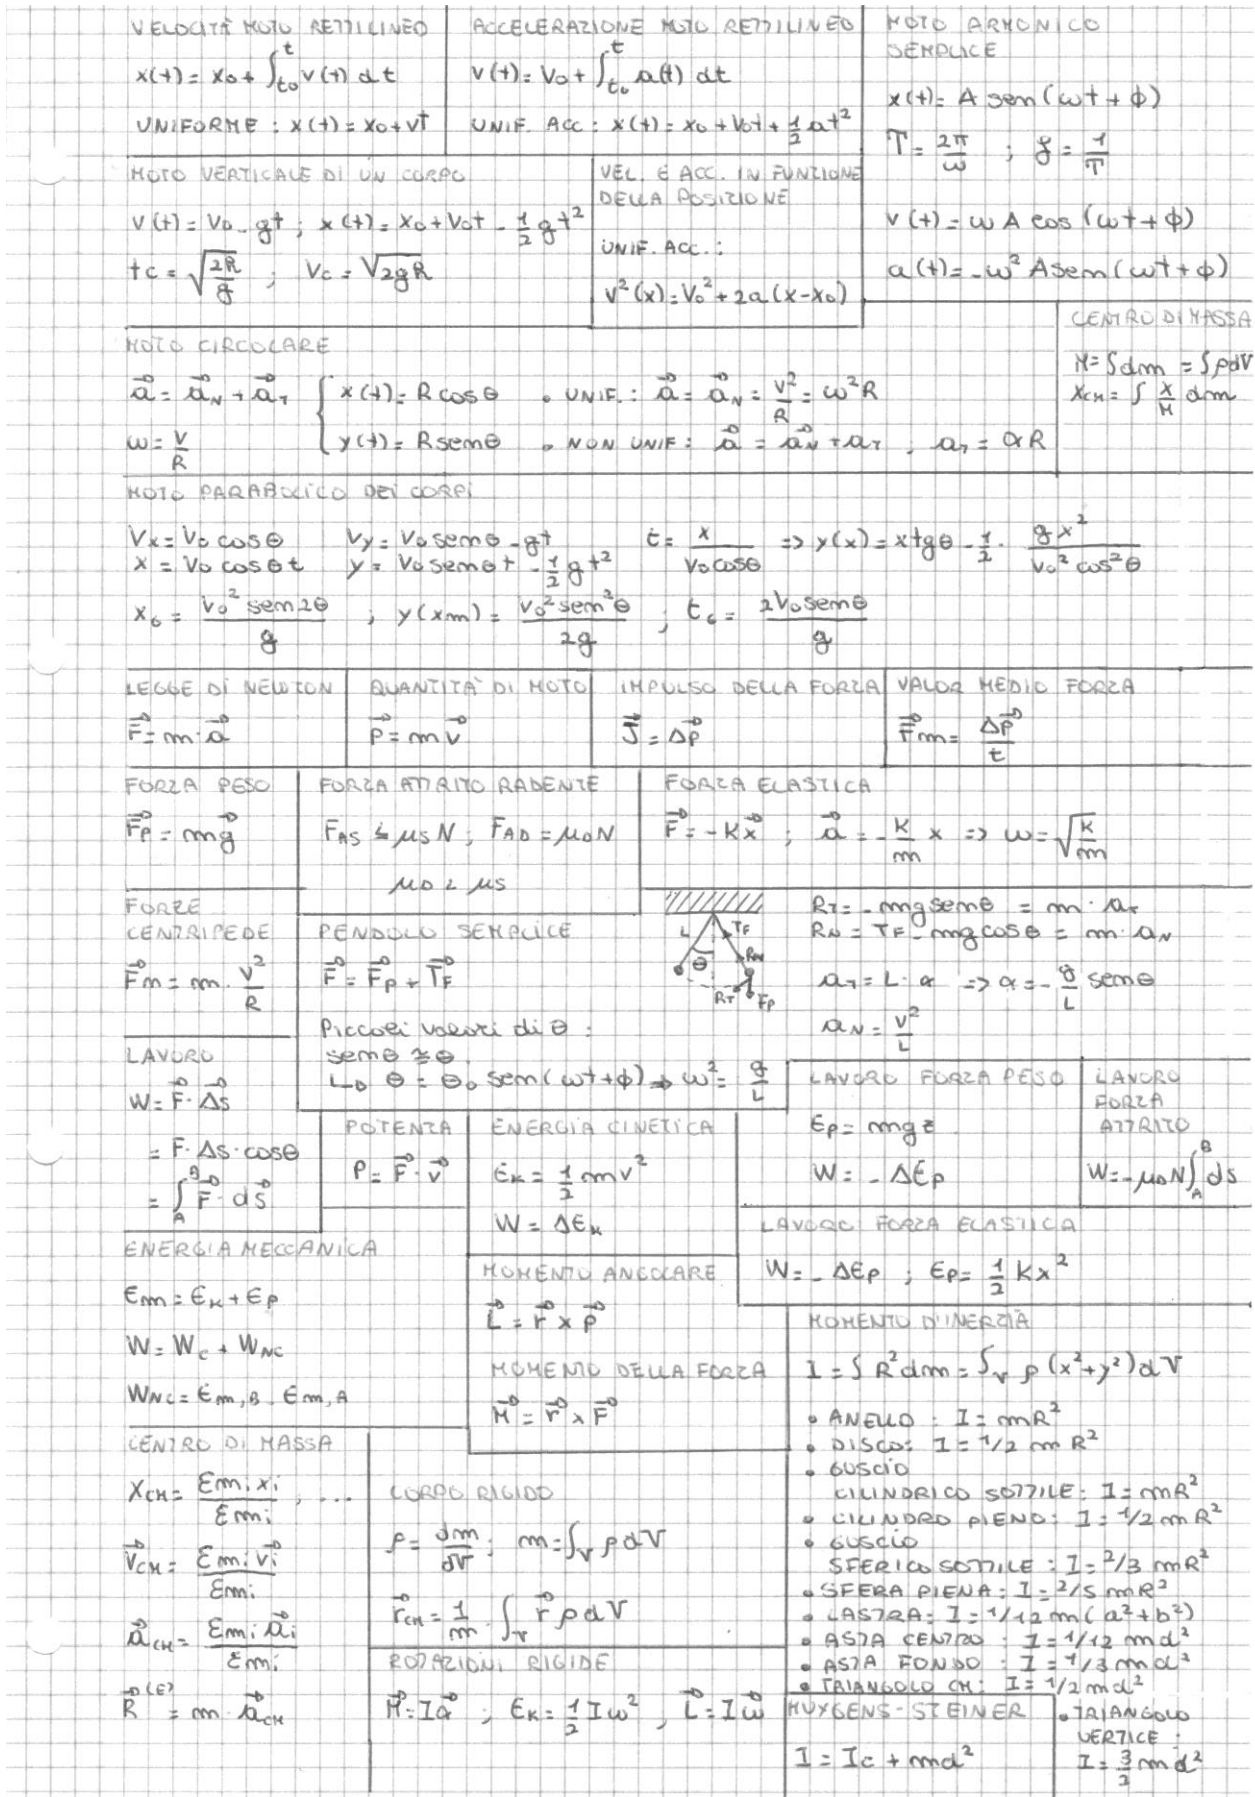 VELOCITÀ MOTO RETTILINEO
x(t) = x₀ + ∫_{t₀}^{t} v(t) dt
UNIFORME : x(t) = x₀ + vt
ACCELERAZIONE MOTO RETTILINEO
v(t) = v₀ + ∫_{t₀}^{t} a(t) dt
UNIF. ACC : x(t) = x₀ + v₀t + 1/2 at²
MOTO ARMONICO
SEMPLICE
x(t) = A sen(ωt + ϕ)
T = 2π/ω ; f = 1/T
v(t) = ω A cos(ωt + ϕ)
a(t) = -ω² A sen(ωt + ϕ)
MOTO VERTICALE DI UN CORPO
v(t) = v₀ - gt ; x(t) = x₀ + v₀t - 1/2 gt²
tc = √(2R/g) ; vc = √(2gR)
VEL. E ACC. IN FUNZIONE
DELLA POSIZIONE
UNIF. ACC. :
v²(x) = v₀² + 2a(x-x₀)
MOTO CIRCOLARE
a⃗ = a⃗_N + a⃗_T { x(t) = R cosθ • UNIF. : a⃗ = a⃗_N = v²/R = ω²R
ω = v/R { y(t) = R senθ • NON UNIF : a⃗ = a⃗_N + a_T ; a_T = αR
CENTRO DI MASSA
M = ∫dm = ∫ρdV
x_CM = ∫ x/M dm
MOTO PARABOLICO DEI CORPI
Vx = V₀ cosθ Vy = V₀ senθ - gt t = x/(V₀ cosθ) => y(x) = x tgθ - 1/2 · gx²/(V₀² cos²θ)
x = V₀ cosθ t y = V₀ senθ t - 1/2 gt²
x_G = V₀² sen2θ/g ; y(xm) = V₀² sen²θ/2g ; t_G = 2V₀ senθ/g
LEGGE DI NEWTON
F⃗ = m·a⃗
QUANTITÀ DI MOTO
P⃗ = m v⃗
IMPULSO DELLA FORZA
J⃗ = Δp⃗
VALOR MEDIO FORZA
F⃗m = Δp⃗/t
FORZA PESO
F⃗p = mg⃗
FORZA ATTRITO RADENTE
F_AS ≤ μs N ; F_AD = μD N
μD < μs
FORZA ELASTICA
F⃗ = -Kx⃗ ; a⃗ = -K/m x => ω = √(K/m)
FORZE
CENTRIPEDE
F⃗m = m · v²/R
PENDOLO SEMPLICE
F⃗ = F⃗p + T⃗F
Piccoli valori di θ :
senθ ≅ θ.
↳ θ = θ₀ sen(ωt+ϕ) → ω² = g/L
L
θ
TF
RN
RT
Fp
RT = -mg senθ = m·a_T
RN = TF - mg cosθ = m·a_N
a_T = L·α => α = -g/L senθ
a_N = v²/L
LAVORO
W = F⃗·Δs⃗
= F·Δs·cosθ
= ∫_A^B F⃗·ds⃗
POTENZA
P = F⃗·v⃗
ENERGIA CINETICA
E_K = 1/2 mv²
W = ΔE_K
LAVORO FORZA PESO
Ep = mgz
W = -ΔEp
LAVORO
FORZA
ATTRITO
W = -μD N ∫_A^B ds
LAVORO FORZA ELASTICA
W = -ΔEp ; Ep = 1/2 Kx²
ENERGIA MECCANICA
Em = E_K + Ep
W = Wc + W_NC
W_NC = Em,B - Em,A
MOMENTO ANGOLARE
L⃗ = r⃗ × p⃗
MOMENTO DELLA FORZA
M⃗ = r⃗ × F⃗
MOMENTO D'INERZIA
I = ∫ R²dm = ∫_V ρ(x²+y²)dV
• ANELLO : I = mR²
• DISCO: I = 1/2 mR²
• GUSCIO
CILINDRICO SOTTILE : I = mR²
• CILINDRO PIENO : I = 1/2 mR²
• GUSCIO
SFERICO SOTTILE : I = 2/3 mR²
• SFERA PIENA : I = 2/5 mR²
• LASTRA : I = 1/12 m(a²+b²)
• ASTA CENTRO : I = 1/12 md²
• ASTA FONDO : I = 1/3 md²
• TRIANGOLO CM : I = 1/2 md²
• TRIANGOLO
VERTICE :
I = 3/2 md²
CENTRO DI MASSA
X_CM = Σmi xi/Σmi ; ...
V⃗_CM = Σmi v⃗i/Σmi
a⃗_CM = Σmi a⃗i/Σmi
R⃗^(E) = m·a⃗_CM
CORPO RIGIDO
ρ = dm/dV ; m = ∫_V ρdV
r⃗_CM = 1/m · ∫_V r⃗ ρdV
ROTAZIONI RIGIDE
M⃗ = Iα⃗ ; E_K = 1/2 Iω² ; L⃗ = Iω⃗
HUYGENS-STEINER
I = Ic + md²